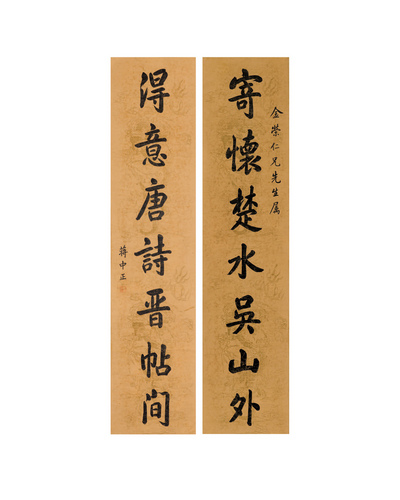 金榮仁兄先生属
寄懷楚水吳山外
得意唐詩晋帖间
蔣中正